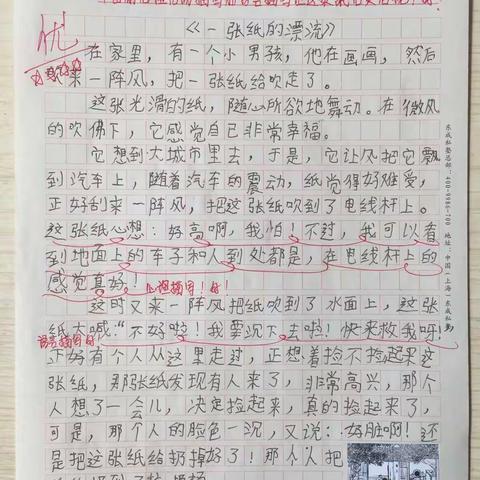 《一张纸的漂流》
优
在家里，有一个小男孩，他在画画，然后
来一阵风，把一张纸给吹走了。
这张光滑的纸，随心所欲地舞动。在微风
的吹佛下，它感觉自己非常幸福。
它想到大城市里去，于是，它让风把它飘
到汽车上，随着汽车的震动，纸觉得好难受，
正好刮来一阵风，把这张纸吹到了电线杆上。
这张纸心想：好高啊，我怕！不过，我可以看
到地面上的车子和人到处都是，在电线杆上的
感觉真好！
这时又来一阵风把纸吹到了水面上，这张
纸大喊："不好啦！我要沉下去啦！快来救我呀！
正好有个人从这里走过，正想着捡不捡起来这
张纸，那张纸发现有人来了，非常高兴，那个
人想了一会儿，决定捡起来，真的捡起来了，
可是，那个人的脸色一沉，又说：好脏啊！还
是把这张纸给扔掉好了！那个人把
东成私塾总部：400-9986-700 地址：中国·上海 东成私塾